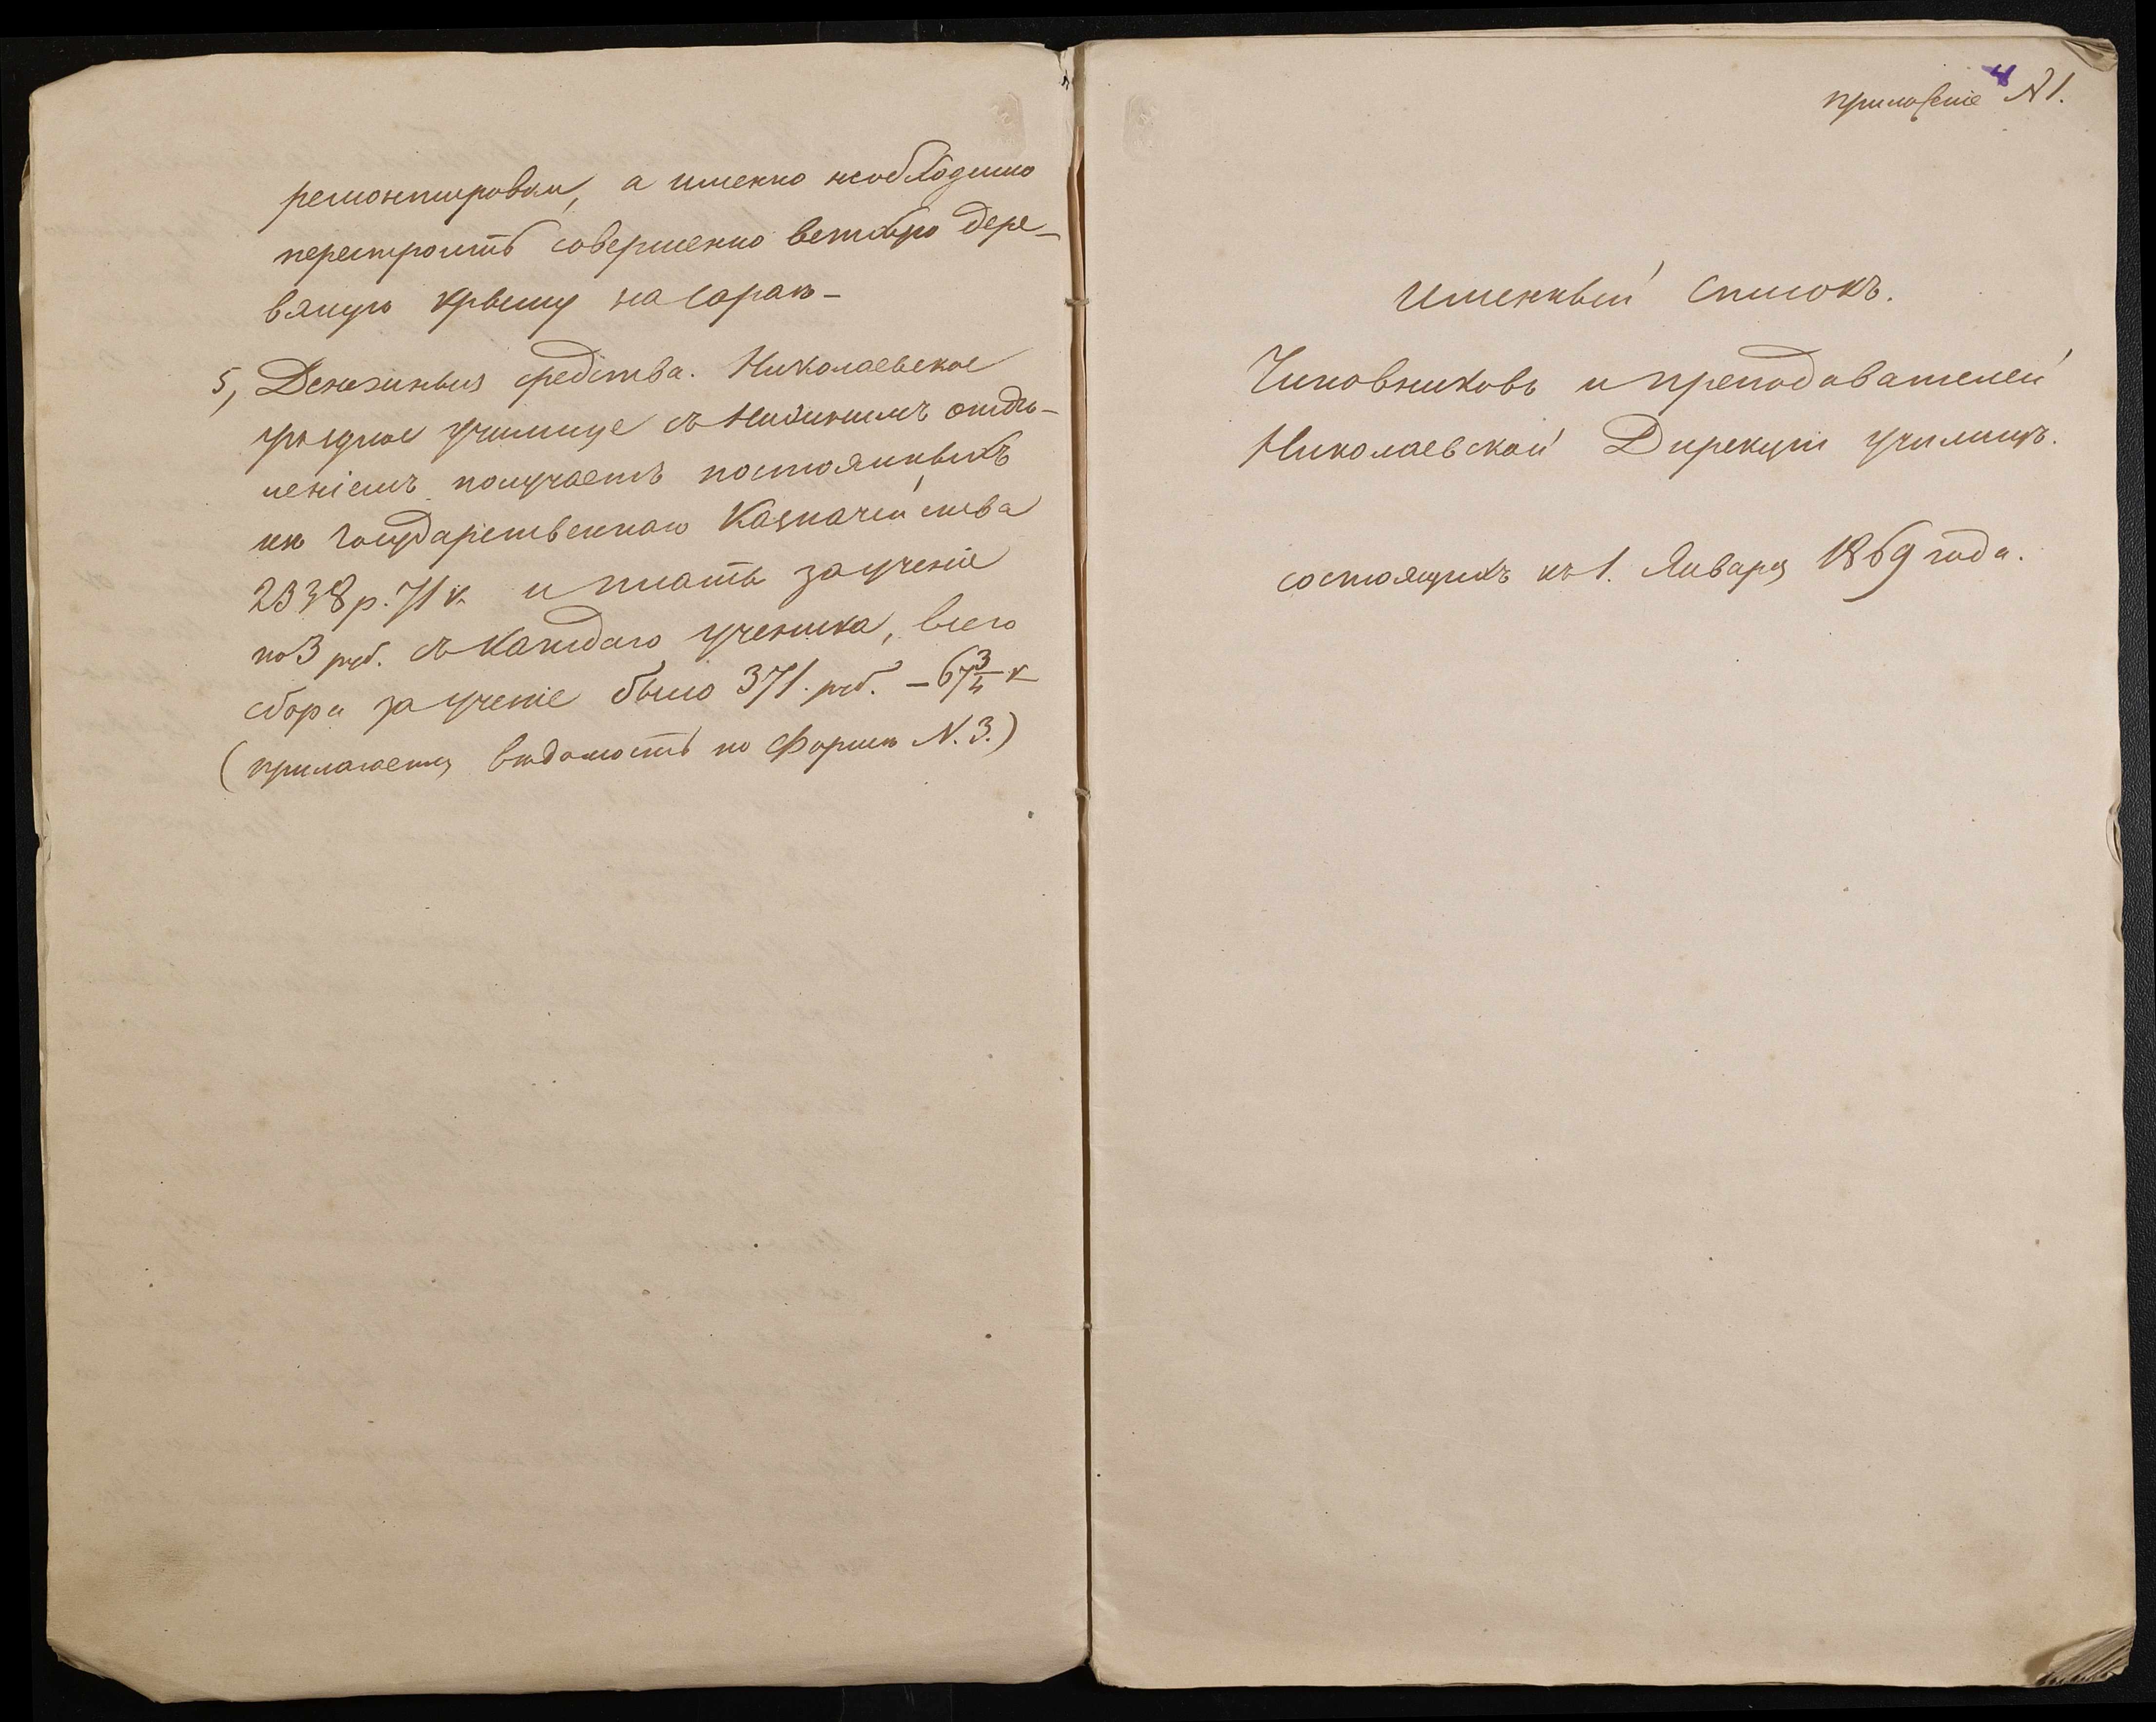 ремонтировки, а именно необходимо
перестроить совершенно ветхую дере-
вяную крышу на сараѣ-
5, Денежныя средства. Николаевское
уѣздное училище съ Низшимъ отдѣ-
леніемъ получаетъ постоянныхъ
изъ Государственнаго Казначейства
2338 р. 71 к. и плата за ученіе
по 3 руб. съ каждаго ученика, всего
сбора за ученіе было 371. руб. - 67 3/4 к
(прилагается вѣдомость по Формѣ N. 3.)
4
приложеніе № 1.
Именный списокъ.
Чиновниковъ и преподавателей
Николаевской Дирекціи училищъ.
состоящихъ къ 1. Января 1869 года.